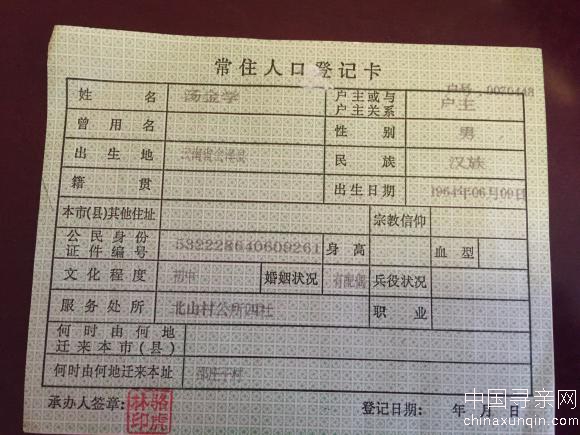 常住人口登记卡
户号 0070448
姓名 汤金学 户主或与户主关系 户主
曾用名 性别 男
出生地 民族 汉族
籍贯 出生日期 1964年06月09日
本市(县)其他住址 宗教信仰
公民身份证件编号 532228640609261 身高 血型
文化程度 初中 婚姻状况 有配偶 兵役状况
服务处所 北山村公所四社 职业
何时由何地迁来本市(县)
何时由何地迁来本址
承办人签章: 骆虎林印 登记日期: 年 月 日
中国寻亲网
chinaxunqin.com